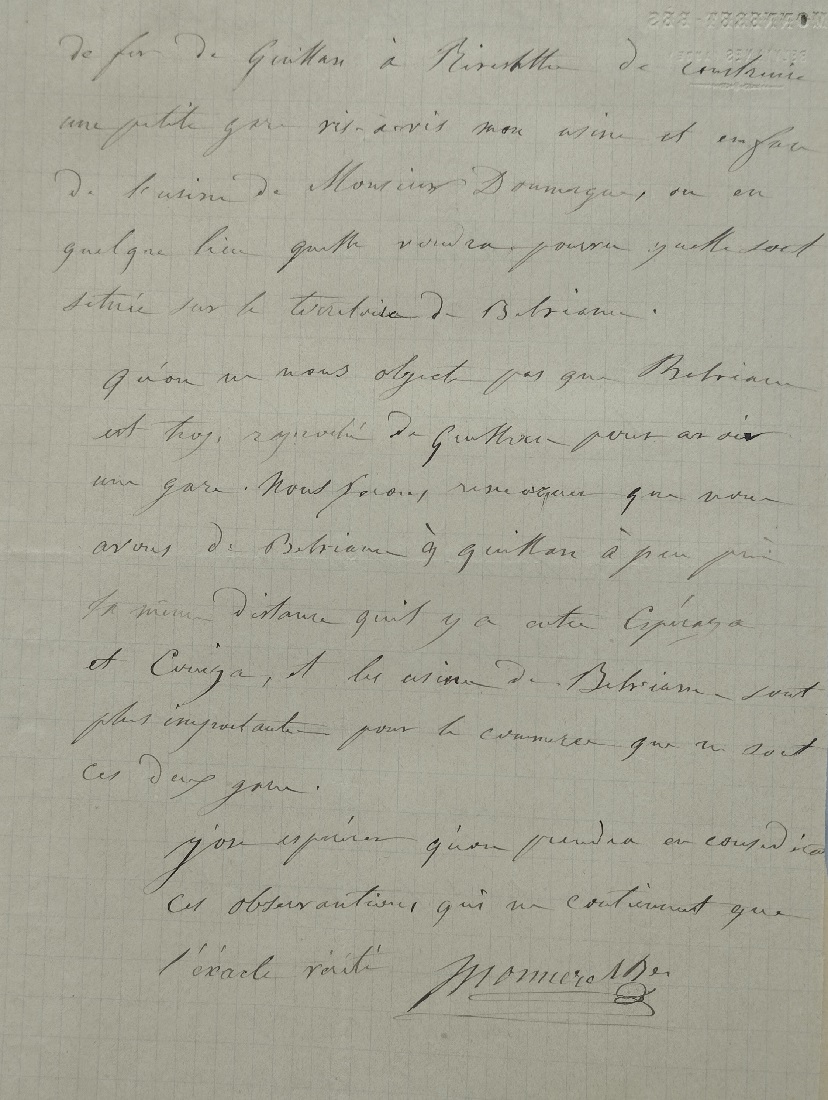 de fer de Quillan à Rivesalte de construire
une petite gare vis-à-vis mon usine et en face
de l'usine de Monsieur Doumergue, ou en
quelque lieu quelle voudra pourvu quelle soit
située sur le territoire de Belviane.
qu'on ne nous objecte pas que Belviane
est trop raproché de Quillan pour avoir
une gare. Nous ferons remarquer que nous
avons de Belviane à Quillan à peu près
la même distance qu'il y a entre Espéraza
et Couiza, et les usines de Belviane sont
plus importantes pour le commerce que ne soit
ces deux gares.
j'ose espérer qu'on prendra en considéra
ces observantions, qui ne contiennent que
l'éxacte vérité